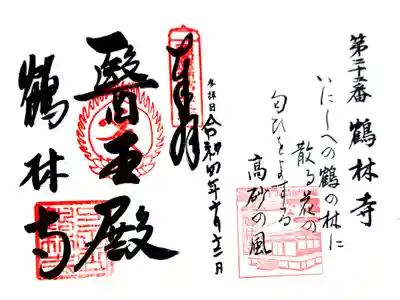 第二十二番 鶴林寺
いにしへの鶴の林に
散る花の
匂ひをよする
高砂の風
奉拝
参拝日 令和四年
醫王殿
鶴林寺